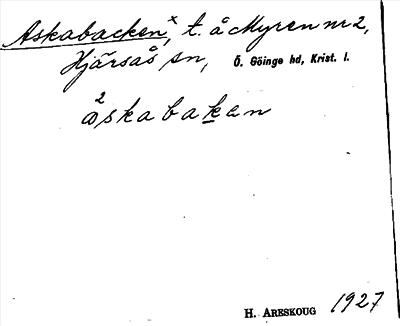 Askabacken,ˣ t. å Myren nr 2,
Hjärsås sn, Ö. Göinge hd, Krist. l.
²askabakan
H. ARESKOUG 1927